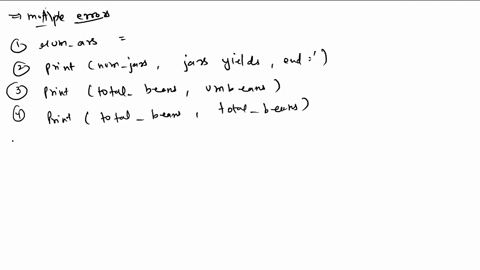 ⇒ multiple errors
① num_ars =
② print (num_jars, jars yields, end=')
③ print (total_beans, umbeans)
④ print (total_beans, total_beans)